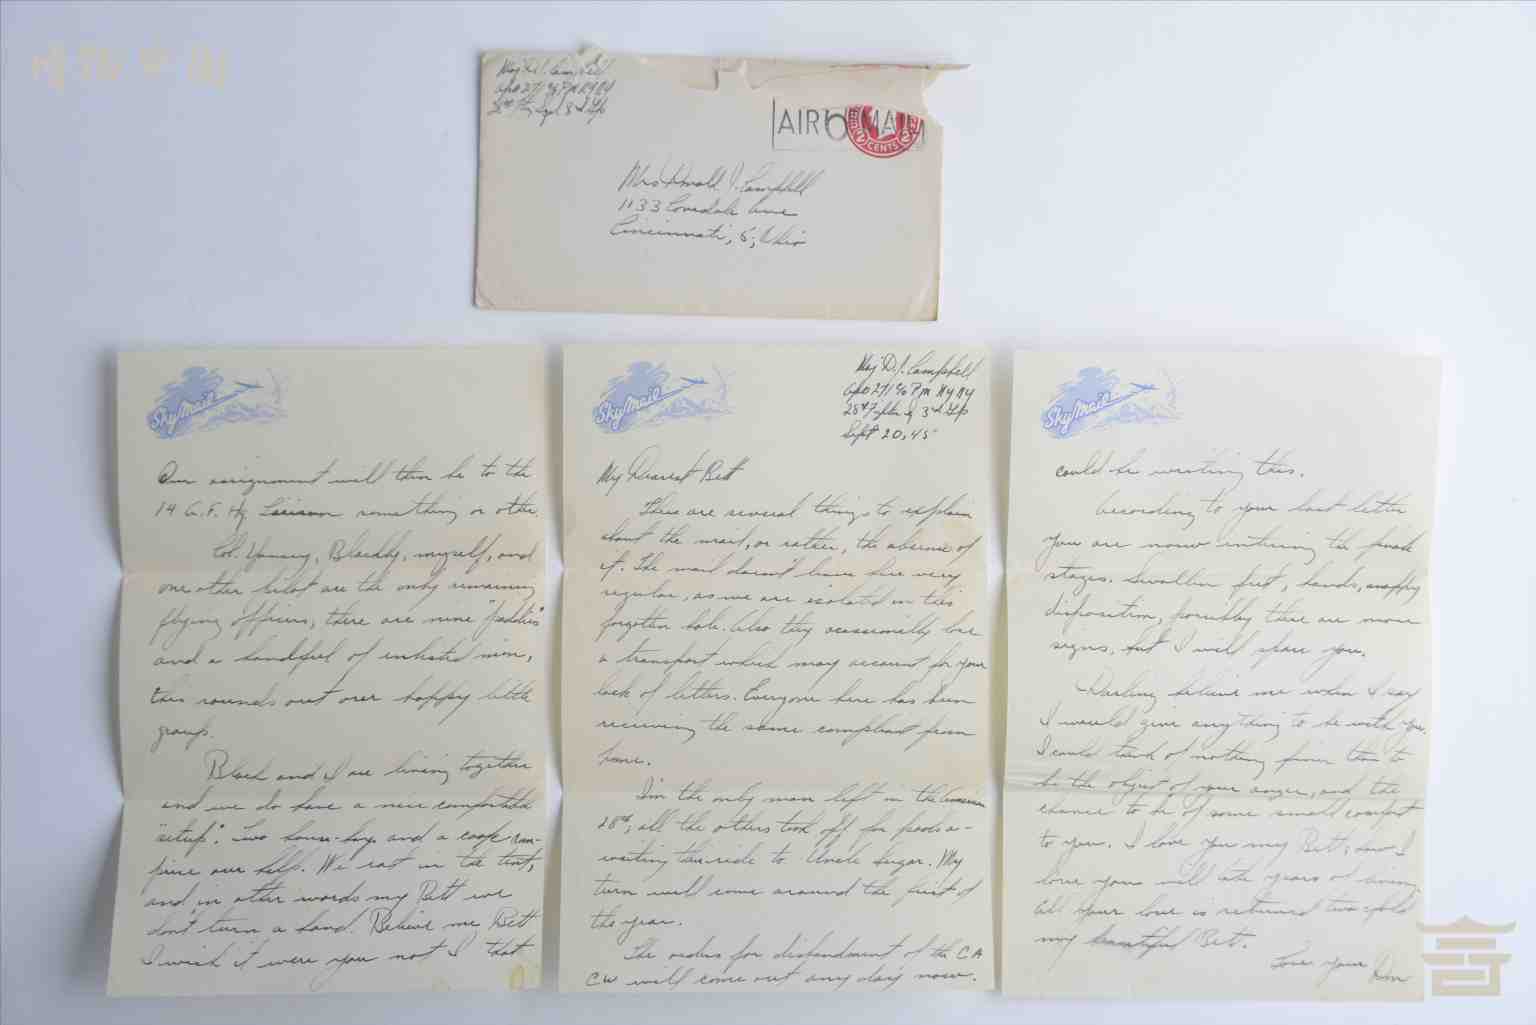 Maj D.J. Campbell
APO 271 % PM NY NY
28th Ftr Sq 3rd Grp
AIR MAIL
6
CENTS
Mrs Donald J. Campbell
1133 Covedale Ave
Cincinnati, 5, Ohio
Sky Mail
Maj D.J. Campbell
APO 271 % PM NY NY
28th Fighter Sq 3rd Grp
Sept 20, 45
My Dearest Bett
There are several things to explain
about the mail, or rather, the absence of
it. The mail doesn't leave here very
regular, as we are isolated in this
forgotten hole. Also they occasionally lose
a transport which may account for your
lack of letters. Everyone here has been
receiving the same complaint from
home.
I'm the only man left in the American
28th, all the others took off for
waiting the ride to Uncle Sugar. My
turn will come around the first of
the year.
The orders for disbandment of the CA
CW will come out any day now.
Sky Mail
Our assignment will then be to the
14 A.F. Hq. Liaison something or other.
Col. Yancey, myself, and
one other pilot are the only remaining
flying officers, there are nine "paddies"
and a handful of enlisted men,
this rounds out our happy little
group.
Black and I are living together
and we do have a nice comfortable
"setup". Two house-boys and a cook com-
prise our help. We eat in the tent,
and in other words my Bett we
don't turn a hand. Believe me Bett
I wish it were you not I that
Sky Mail
could be writing this.
According to your last letter
you are now entering the final
stages. Swollen feet, hands, snappy
disposition, possibly there are more
signs, but I will spare you.
Darling believe me when I say
I would give anything to be with you.
I could think of nothing finer than to
be the object of your anger, and the
chance to be of some small comfort
to you. I love you my Bett, how I
love you will take years of
All your love is returned two fold
my beautiful Bet.
Love your Don